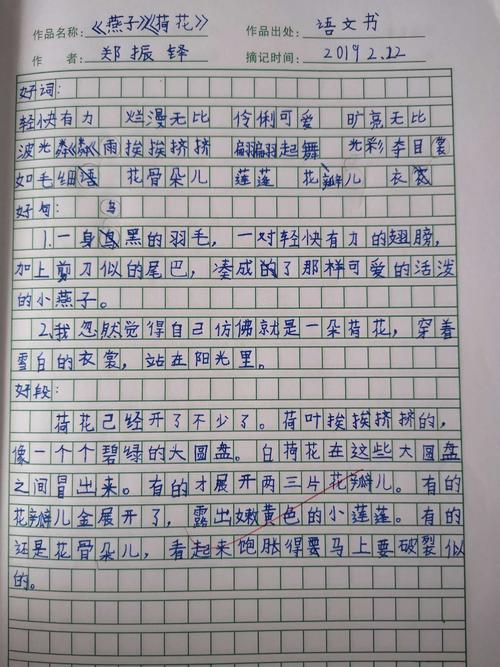 作品名称:《燕子》《荷花》 作品出处: 语文书
作 者 郑振铎 摘记时间: 2019 2.22
好词:
轻快有力 烂漫无比 伶俐可爱 旷亮无比
波光粼粼 雨 挨挨挤挤 翩翩起舞 光彩夺目 裳
如毛细语 花骨朵儿 莲蓬 花瓣儿 衣裳
好句: 乌
1.一身乌黑的羽毛,一对轻快有力的翅膀,
加上剪刀似的尾巴,凑成的了那样可爱的活泼
的小燕子。
2.我忽然觉得自己仿佛就是一朵荷花,穿着
雪白的衣裳,站在阳光里。
好段:
荷花已经开了不少了。荷叶挨挨挤挤的,
像一个个碧绿的大圆盘。白荷花在这些大圆盘
之间冒出来。有的才展开两三片花瓣儿。有的
花瓣儿全展开了,露出嫩黄色的小莲蓬。有的
还是花骨朵儿,看起来饱胀得要马上要破裂似
的。